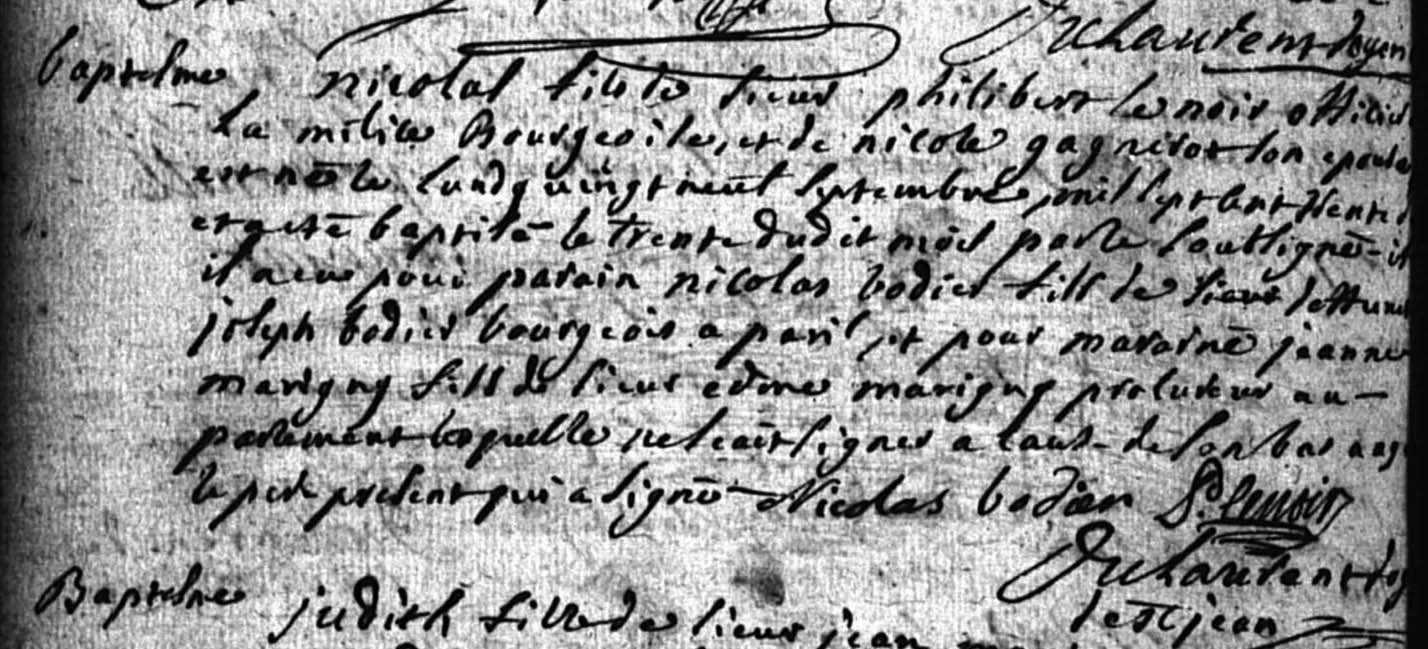 Duchaufent doyen
baptesme nicolas fils de sieur philibert le noir officier
La milice Bourgeoise, et de nicole gagnerot son epouse
est né le lundy vingt neuf septembre, mil sept cent trente
et a esté baptisé le trente dudit mois par le soubsigné
il a eu pour parain nicolas bodier fils de sieur deffunct
joseph bodier bourgeois a paris, et pour maraine jeanne
marigny fille de sieur edme marigny procureur au
parlement laquelle ne scait signer a cause de son bas aage
le pere present qui a signé Nicolas bodier P. lenoir
Baptesme judith fille de sieur jean
St jean